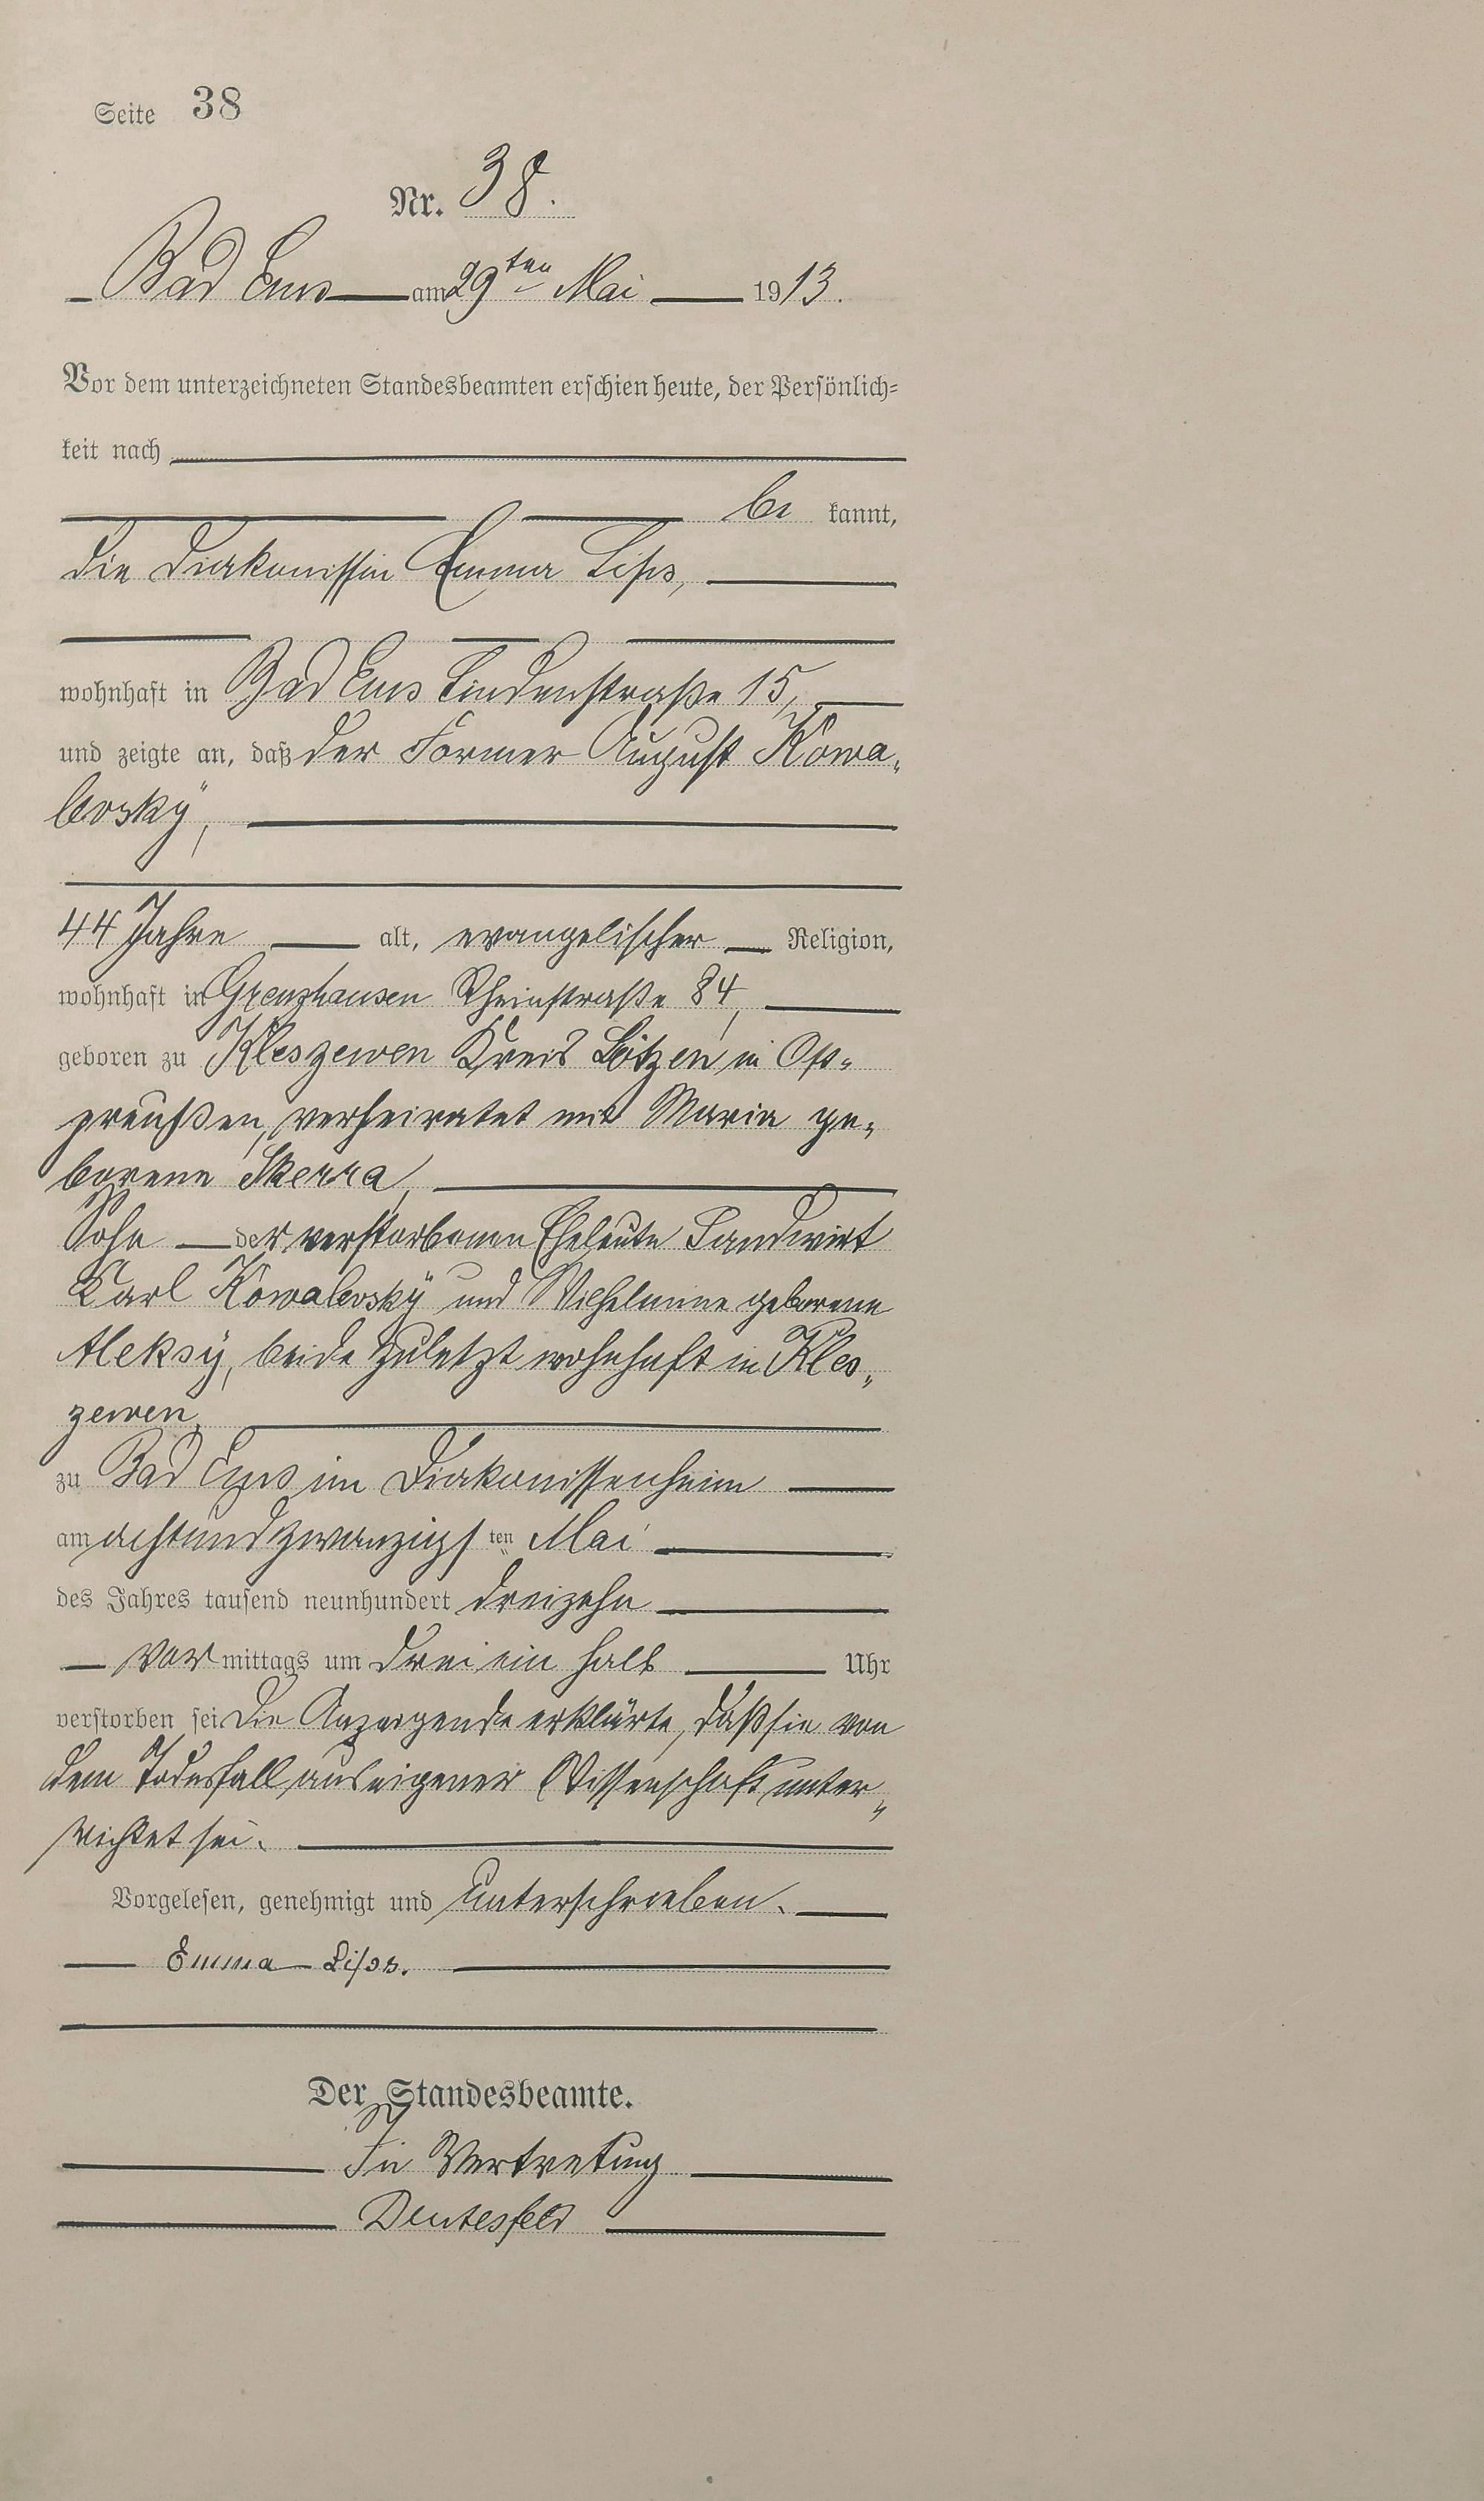 Seite 38
Nr. 38.
Bad Ems am 29ten Mai 1913.
Vor dem unterzeichneten Standesbeamten erschien heute, der Persönlich-
keit nach
be kannt,
die Diakonissin Emma Lips,
wohnhaft in Bad Ems Lindenstraße 15,
und zeigte an, daß der Former August Kowa-
levsky,
44 Jahre alt, evangelischer Religion,
wohnhaft in Grenzhausen Rheinstraße 84,
geboren zu Kleszewen Kreis Lötzen in Ost-
preußen, verheiratet mit Maria ge-
borene Skerra,
Sohn der verstorbenen Eheleute Landwirt
Karl Kowalevsky und Wilhelmine geborene
Aleksy, beide zuletzt wohnhaft in Kles-
zewen,
zu Bad Ems im Diakonissenheim
am achtundzwanzigsten Mai
des Jahres tausend neunhundert dreizehn
Vormittags um drei ein halb Uhr
verstorben sei. Die Anzeigende erklärte, daß sie von
dem Todesfall aus eigener Wissenschaft unter-
richtet sei.
Vorgelesen, genehmigt und unterschrieben.
Emma Lips.
Der Standesbeamte.
In Vertretung
Deutesfeld